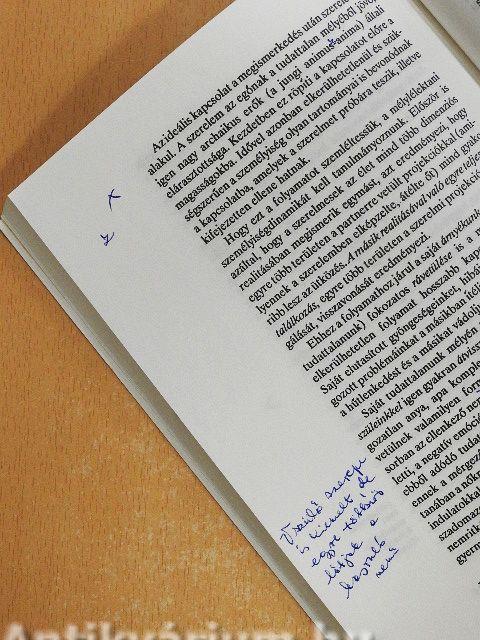 Az ideális kapcsolat a megismerkedés után szerele
alakul. A szerelem az egónak a tudattalan mélyéből jövő,
igen nagy archaikus erők (a jungi animus-anima) általi
elárasztottsága. Kezdetben ez röpíti a kapcsolatot előre a
magasságokba. Idővel azonban elkerülhetetlenül és szük-
ségszerűen a személyiség olyan tartományai is bevonódnak
a kapcsolatba, amelyek a szerelmet próbára teszik, illetve
kifejezetten ellene hatnak.
Hogy ezt a folyamatot szemléltessük, a mélylélektani
személyiségdinamikát kell tanulmányoznunk. Először is
azáltal, hogy a szerelmesek az élet mind több dimenziós
realitásában megismerik egymást, azt eredményezi, hogy
egyre több területen a partnerre vetült projekciókkal (ami-
lyennek a szerelemben elképzelte, átélte őt) mind gyako-
ribb lesz az ütközés. A másik realitásával való egyre teljes
találkozás, egyre több területen a szerelmi projekció
gálását, visszavonását eredményezi.
Ehhez a folyamathoz járul a saját árnyékunk
tudattalanunk) fokozatos rávetítése is a
elkerülhetetlen folyamat hosszabb kap
Saját elutasított gyöngeségeinket, hibái
gozott problémáinkat a másikban ítélj
a hűtlenkedést és a másikat vádolj
Saját tudattalanunk mélyén
szüleinkket igen gyakran átvisz
gozatlan anya, apa kompl
vetülnek valamilyen form
sorban az ellenkező nem
letti, a negatív emóció
ebből adódó tudat
ennek a mérgező
tanában a nőkn
indulatokkal
szadomazo
nemritk
gyerm
szerepe
is kiemelt de
egyre többször
látjuk a
hasonló
nemű
Antikvárium.hu